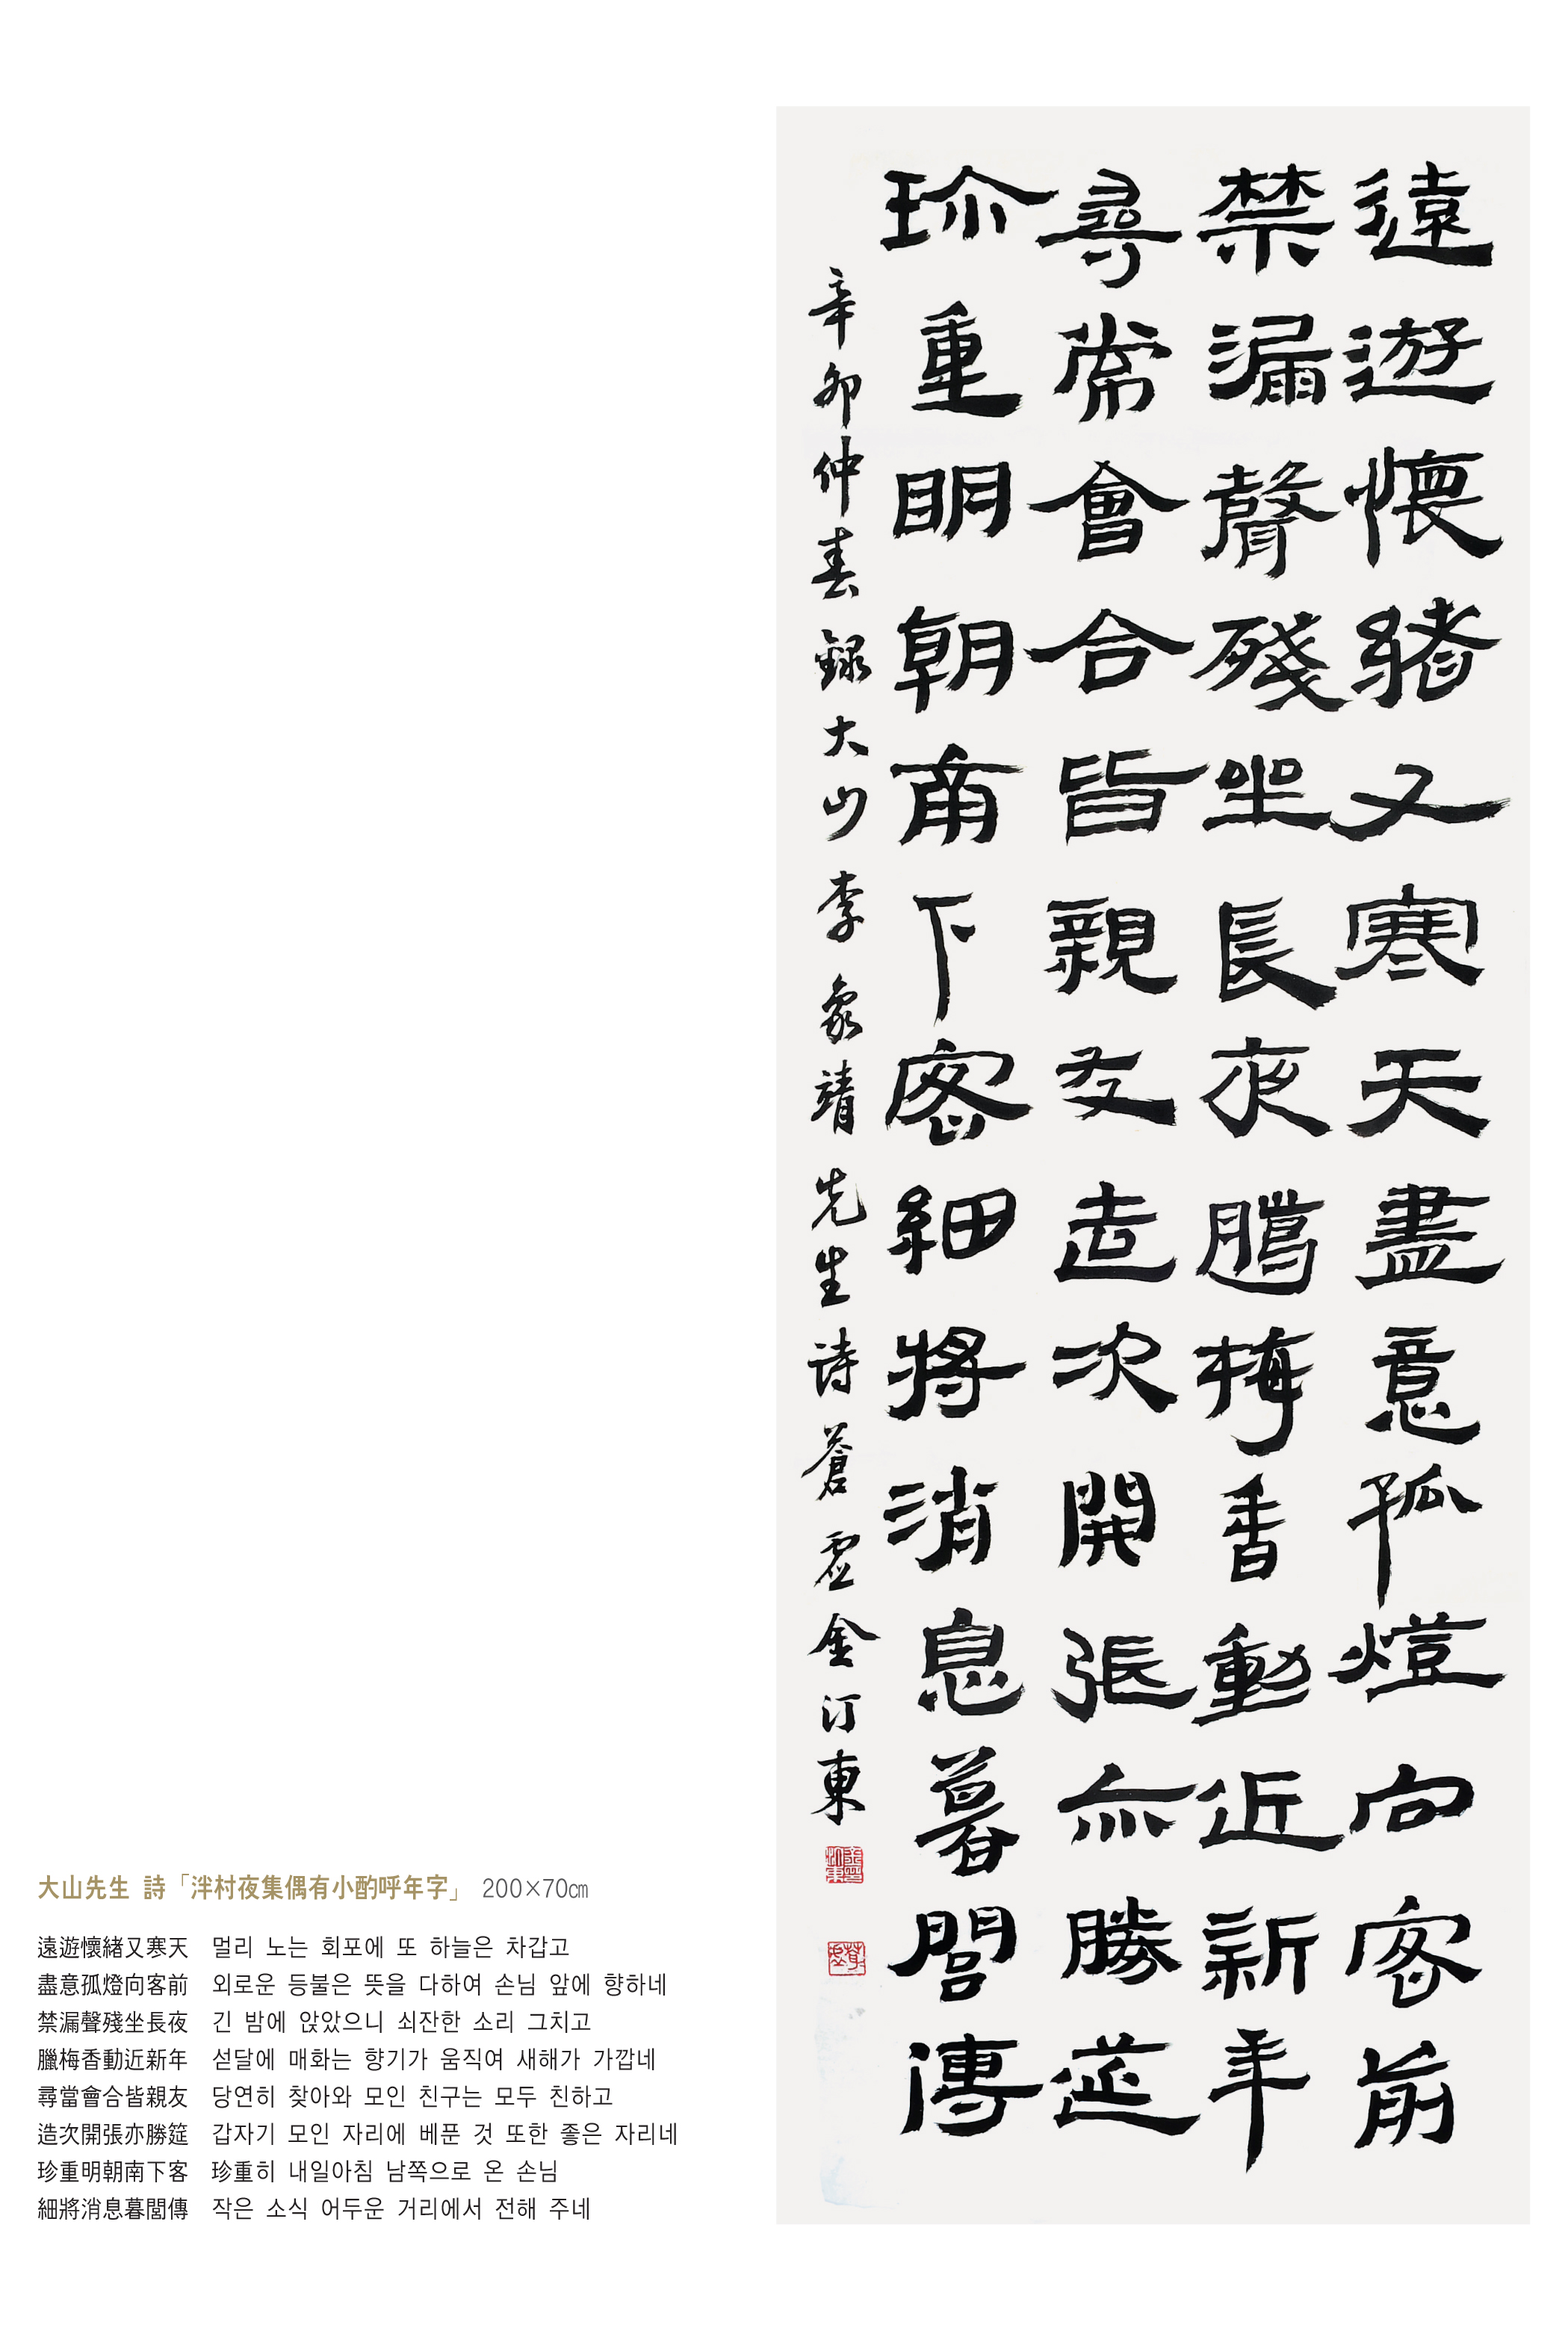 遠遊懷緒又寒天盡意孤燈向客前
禁漏聲殘坐長夜臘梅香動近新年
尋常會合皆親友造次開張亦勝筵
珍重明朝南下客細將消息暮閭傳
辛卯仲春錄大山李象靖先生詩蒼虛金汀東
大山先生 詩「泮村夜集偶有小酌呼年字」 200×70㎝
遠遊懷緒又寒天 멀리 노는 회포에 또 하늘은 차갑고
盡意孤燈向客前 외로운 등불은 뜻을 다하여 손님 앞에 향하네
禁漏聲殘坐長夜 긴 밤에 앉았으니 쇠잔한 소리 그치고
臘梅香動近新年 섣달에 매화는 향기가 움직여 새해가 가깝네
尋當會合皆親友 당연히 찾아와 모인 친구는 모두 친하고
造次開張亦勝筵 갑자기 모인 자리에 베푼 것 또한 좋은 자리네
珍重明朝南下客 珍重히 내일아침 남쪽으로 온 손님
細將消息暮閭傳 작은 소식 어두운 거리에서 전해 주네